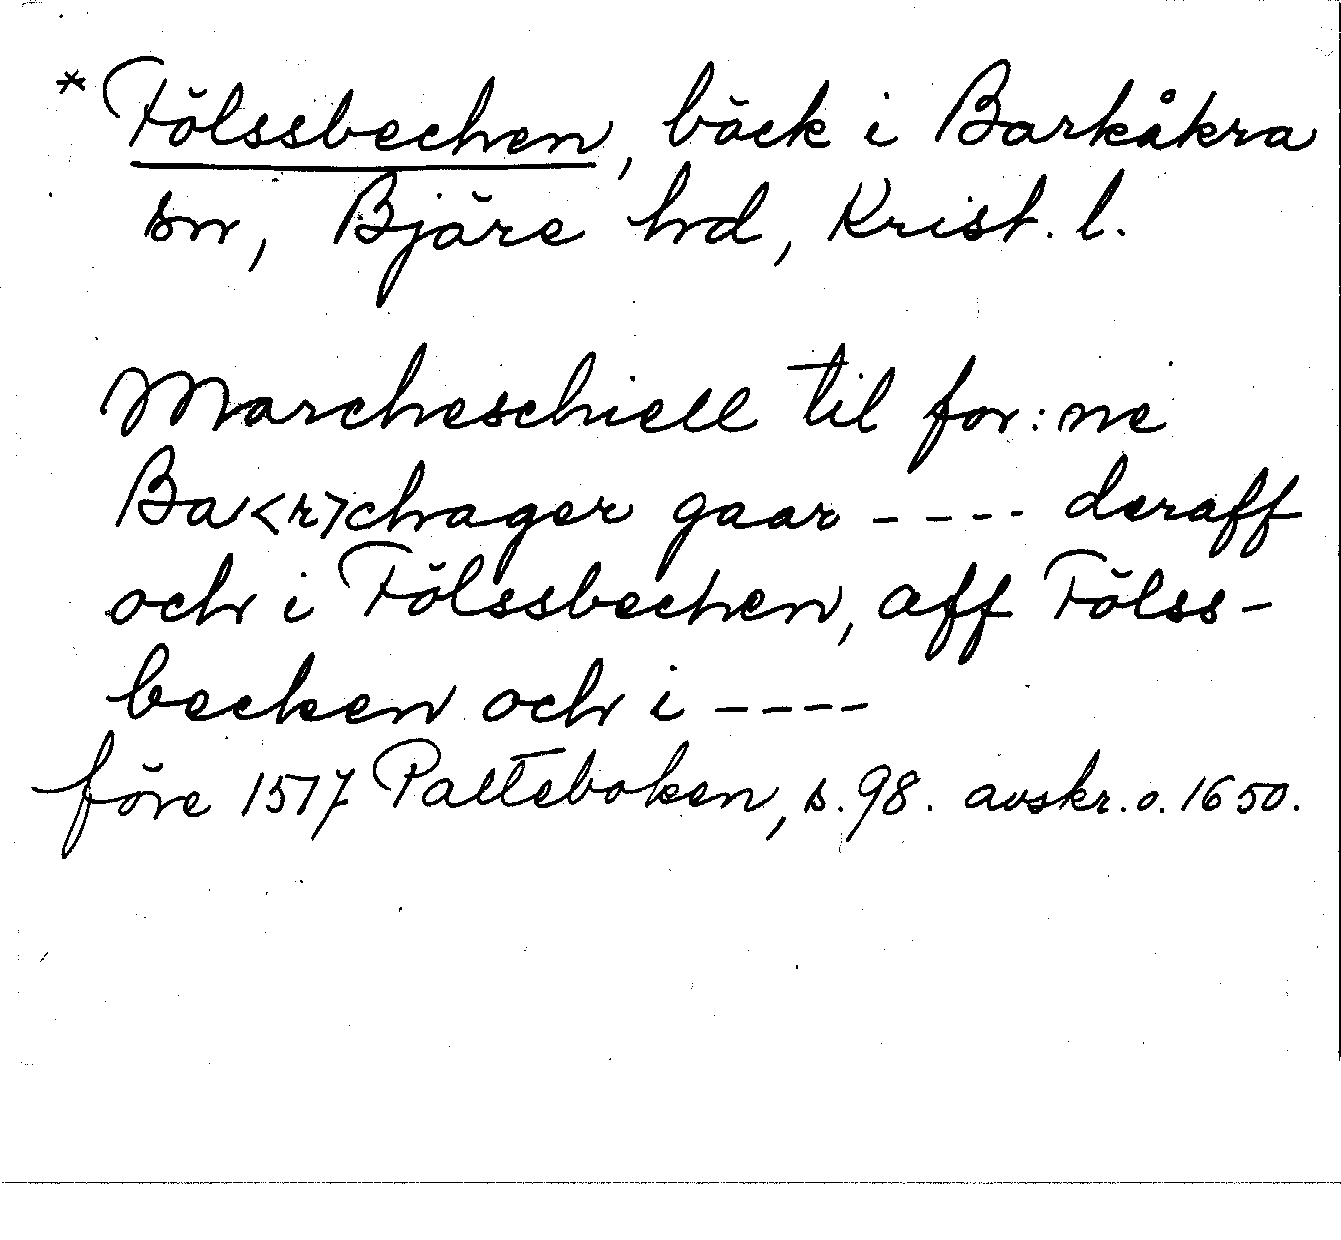 * Fölssbechen, bäck i Barkåkra
sn, Bjäre hd, Krist. l.
Marcheschiell til for:ne
Ba<r>chager gaar ---- deraff
och i Fölssbechen, aff Fölss-
becken och i ----
före 1517 Palteboken, s. 98. avskr. o. 1650.